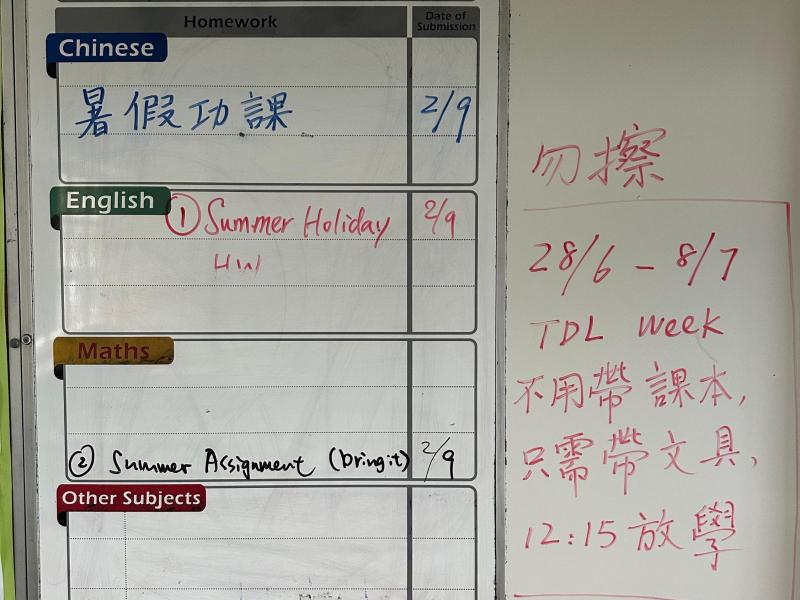 Homework
Date of
Submission
Chinese
暑假功課 2/9
English
① Summer Holiday 2/9
Maths
② Summer Assignment (bring it) 2/9
Other Subjects
勿擦
28/6 - 8/7
TDL week
不用帶課本,
只需帶文具,
12:15 放學